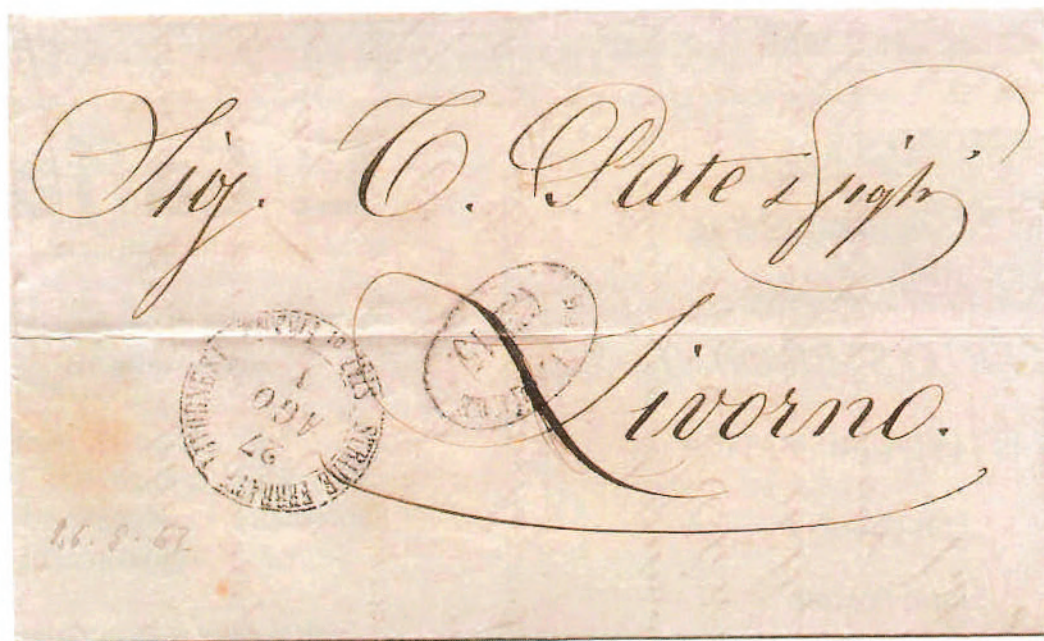 Sig. T. Pate & figli
Livorno.
STRADE FERRATE
27
AGO
1
26. 8. 67